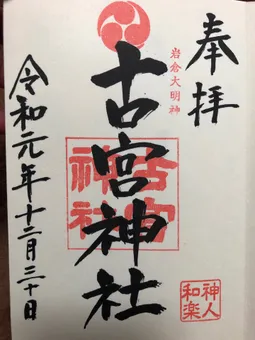 奉拝
岩倉大明神
古宮神社
古宮
神社
神人
和楽
令和元年十二月三十日